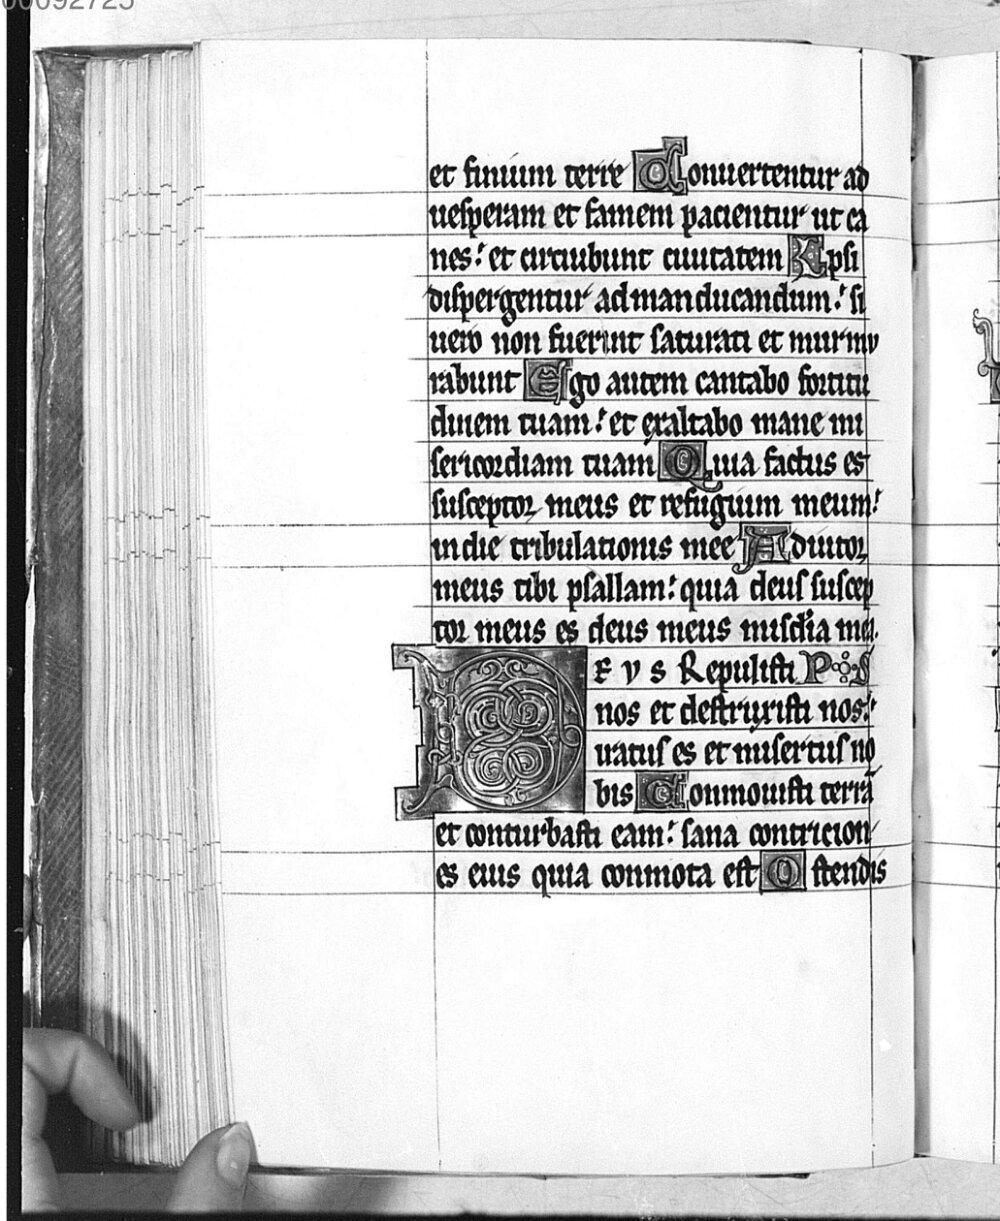 00092725
et finium terre Conuertentur ad
uesperam et famem pacientur ut ca
nes: et circuibunt ciuitatem Ipsi
dispergentur ad manducandum: si
uero non fuerint saturati et murmu
rabunt Ego autem cantabo fortitu
dinem tuam: et exaltabo mane mi
sericordiam tuam Quia factus es
susceptor meus et refugium meum:
in die tribulationis mee Adiutor
meus tibi psallam: quia deus suscep
tor meus es deus meus mis̅dia mea.
DEVS Repulisti
nos et destruxisti nos:
iratus es et misertus no
bis Conmouisti terrã
et conturbasti eam: sana contricion
es eius quia conmota est Ostendis